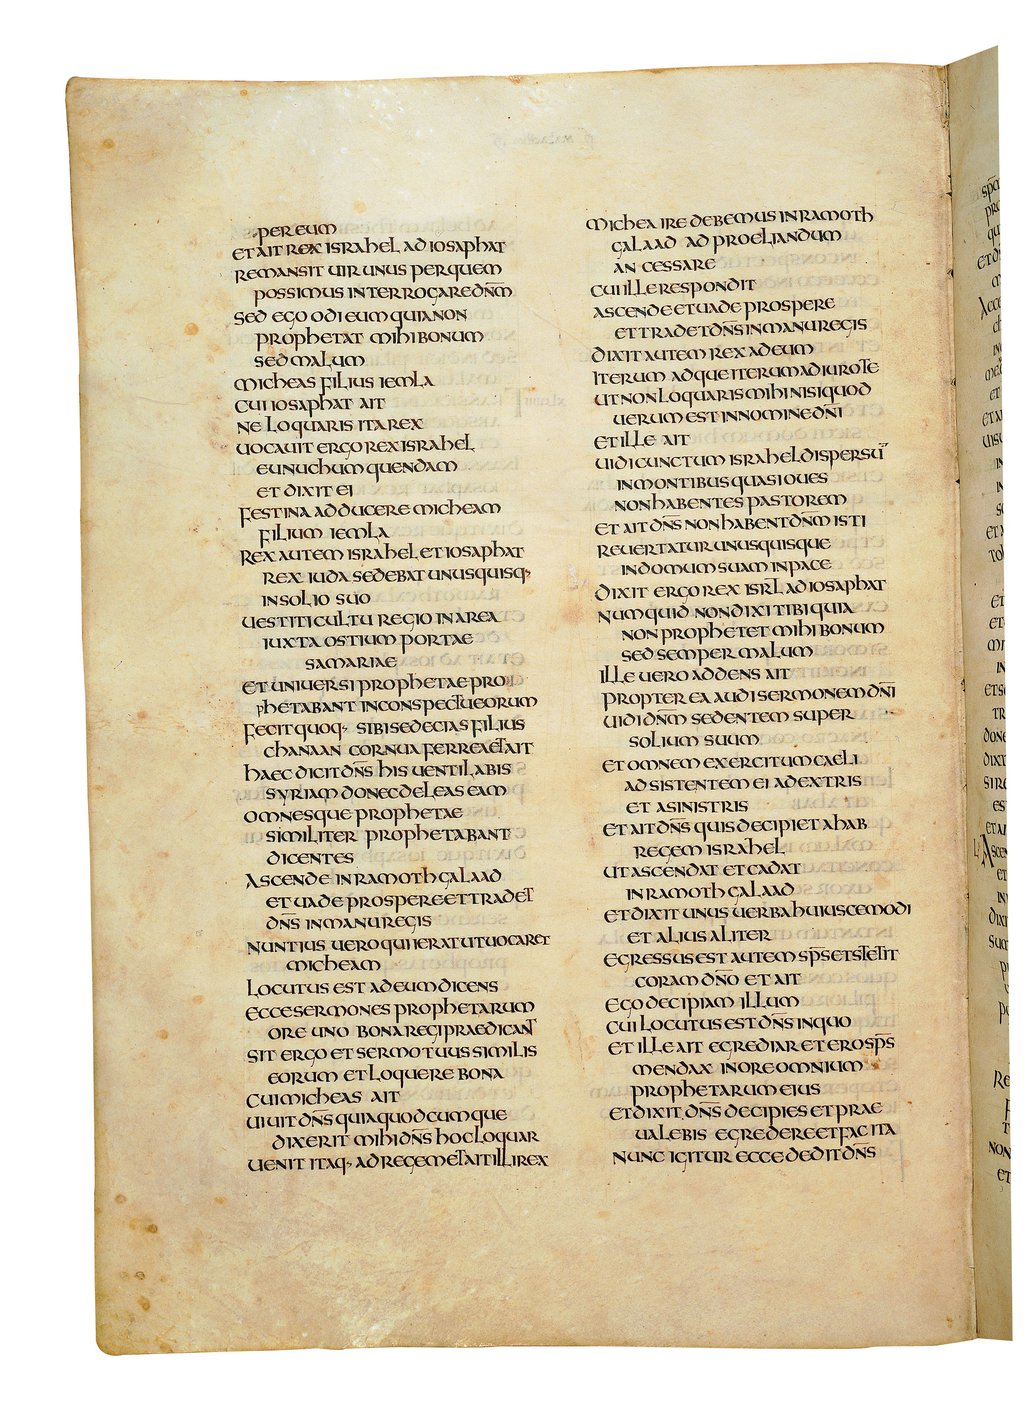 per eum
et ait rex israhel ad iosaphat
remansit uir unus per quem
possimus interrogare dn̄m
sed ego odi eum quia non
prophetat mihi bonum
sed malum
micheas filius iemla
cui iosaphat ait
ne loquaris ita rex
uocauit ergo rex israhel
eunuchum quendam
et dixit ei
festina adducere micheam
filium iemla
rex autem israhel et iosaphat
rex iuda sedebat unusquisq·
in solio suo
uestiti cultu regio in area
iuxta ostium portae
samariae
et uniuersi prophetae pro
phetabant in conspectu eorum
fecit quoq· sibi sedecias filius
chanaan cornua ferrea et ait
haec dicit dn̄s his uentilabis
syriam donec deleas eam
omnesque prophetae
similiter prophetabant
dicentes
ascende in ramoth galaad
et uade prospere et tradet
dn̄s in manu regis
nuntius uero qui ierat ut uocaret
micheam
locutus est ad eum dicens
ecce sermones prophetarum
ore uno bona regi praedicant
sit ergo et sermo tuus similis
eorum et loquere bona
cui micheas ait
uiuit dn̄s quia quodcumque
dixerit mihi dn̄s hoc loquar
uenit itaq· ad regem et ait illi rex
michea ire debemus in ramoth
galaad ad proeliandum
an cessare
cui ille respondit
ascende et uade prospere
et tradet dn̄s in manu regis
dixit autem rex ad eum
iterum adque iterum adiuro te
ut non loquaris mihi nisi quod
uerum est in nomine dn̄i
et ille ait
uidi cunctum israhel dispersū
in montibus quasi oues
non habentes pastorem
et ait dn̄s non habent dn̄m isti
reuertatur unusquisque
in domum suam in pace
dixit ergo rex isrl̄ ad iosaphat
numquid non dixi tibi quia
non prophetet mihi bonum
sed semper malum
ille uero addens ait
propterea audi sermonem dn̄i
uidi dn̄m sedentem super
solium suum
et omnem exercitum caeli
adsistentem ei a dextris
et a sinistris
et ait dn̄s quis decipiet ahab
regem israhel
ut ascendat et cadat
in ramoth galaad
et dixit unus uerba huiuscemodi
et alius aliter
egressus est autem sp̄s et stetit
coram dn̄o et ait
ego decipiam illum
cui locutus est dn̄s in quo
et ille ait egrediar et ero sp̄s
mendax in ore omnium
prophetarum eius
et dixit dn̄s decipies et prae
ualebis egredere et fac ita
nunc igitur ecce dedit dn̄s